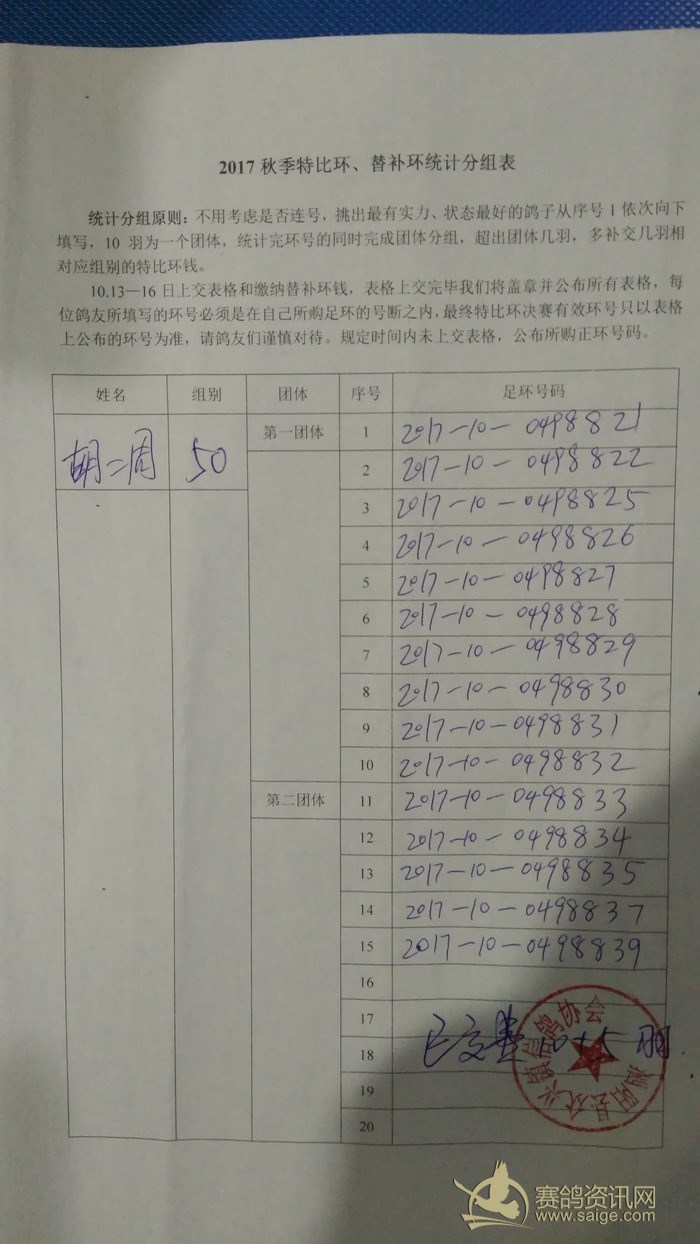 2017 秋季特比环、替补环统计分组表
统计分组原则：不用考虑是否连号，挑出最有实力、状态最好的鸽子从序号 1 依次向下
填写，10 羽为一个团体，统计完环号的同时完成团体分组，超出团体几羽，多补交几羽相
对应组别的特比环钱。
10.13—16 日上交表格和缴纳替补环钱，表格上交完毕我们将盖章并公布所有表格，每
位鸽友所填写的环号必须是在自己所购足环的号断之内，最终特比环决赛有效环号只以表格
上公布的环号为准，请鸽友们谨慎对待。规定时间内未上交表格，公布所购正环号码。
姓名 组别 团体 序号 足环号码
胡二周 50 第一团体 1 2017-10-0498821
2 2017-10-0498822
3 2017-10-0498825
4 2017-10-0498826
5 2017-10-0498827
6 2017-10-0498828
7 2017-10-0498829
8 2017-10-0498830
9 2017-10-0498831
10 2017-10-0498832
第二团体 11 2017-10-0498833
12 2017-10-0498834
13 2017-10-0498835
14 2017-10-0498837
15 2017-10-0498839
16
17
18 已交 10+5 羽
19
20
泗阳县众兴镇信鸽协会
赛鸽资讯网
www.saige.com